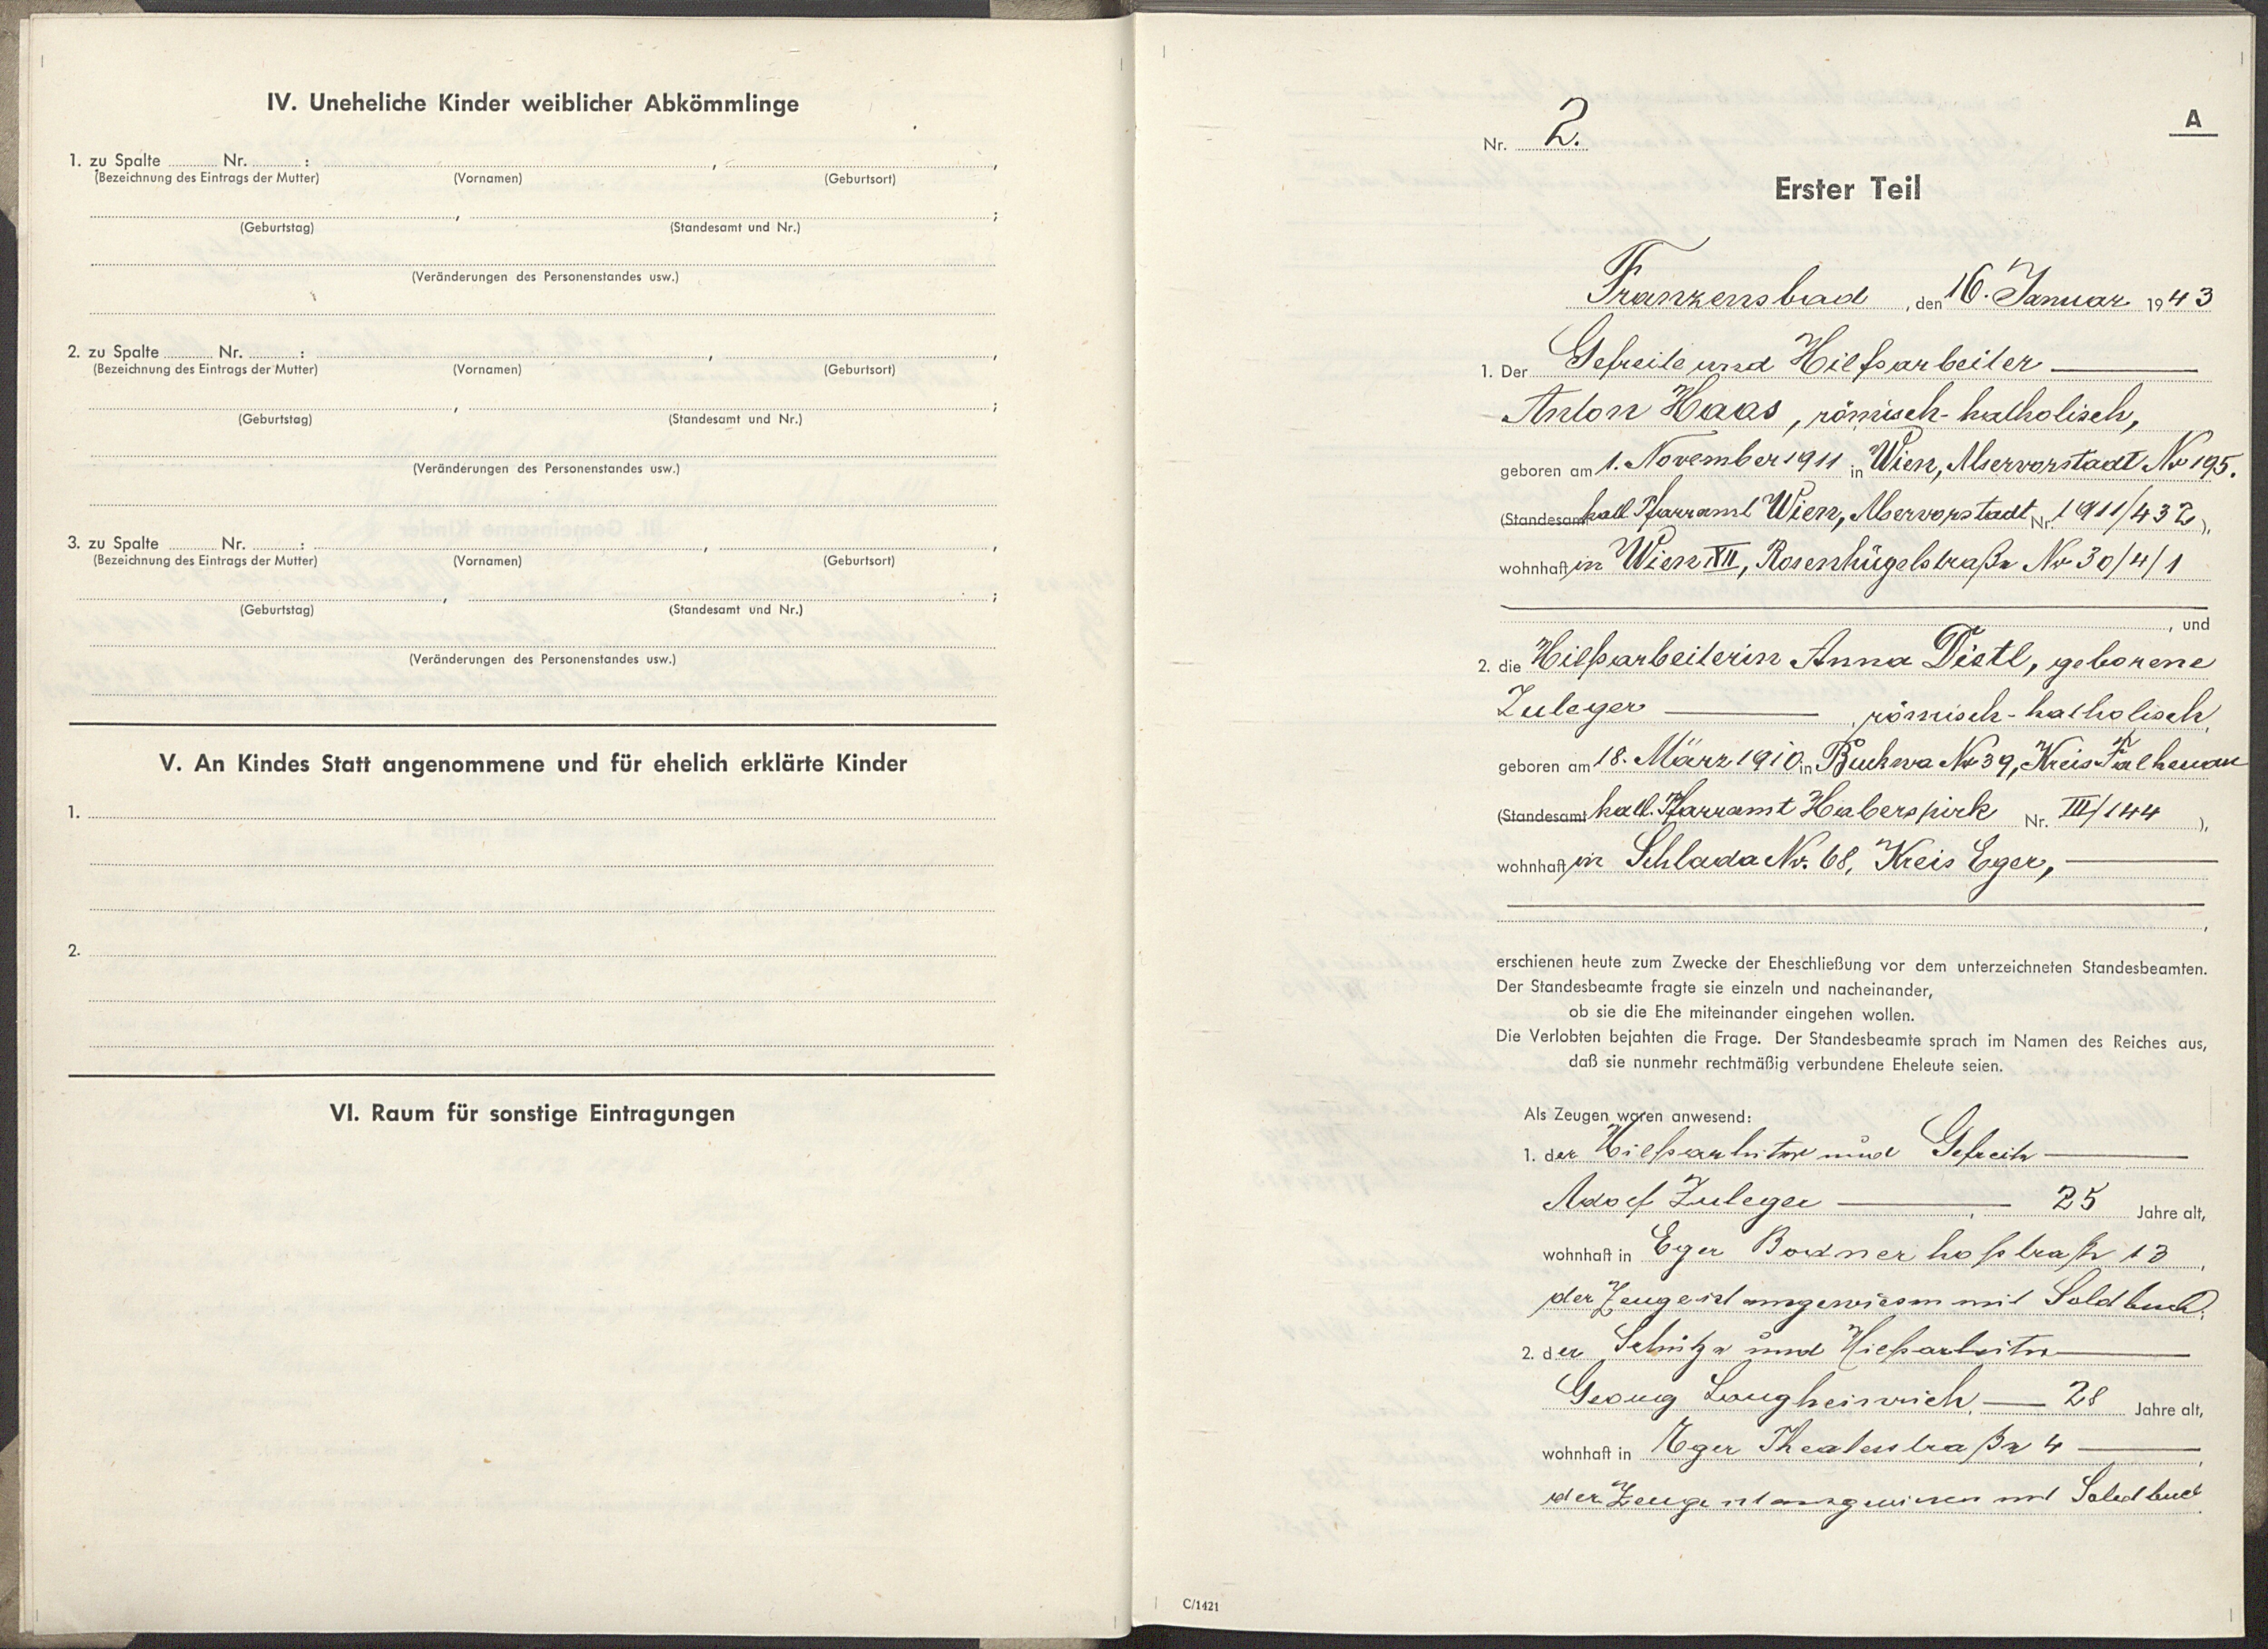 IV. Uneheliche Kinder weiblicher Abkömmlinge
1. zu Spalte ............ Nr. ............ : , ,
(Bezeichnung des Eintrags der Mutter) (Vornamen) (Geburtsort)
, ;
(Geburtstag) (Standesamt und Nr.)
(Veränderungen des Personenstandes usw.)
2. zu Spalte ............ Nr. ............ : , ,
(Bezeichnung des Eintrags der Mutter) (Vornamen) (Geburtsort)
, ;
(Geburtstag) (Standesamt und Nr.)
(Veränderungen des Personenstandes usw.)
3. zu Spalte ............ Nr. ............ : , ,
(Bezeichnung des Eintrags der Mutter) (Vornamen) (Geburtsort)
, ;
(Geburtstag) (Standesamt und Nr.)
(Veränderungen des Personenstandes usw.)
V. An Kindes Statt angenommene und für ehelich erklärte Kinder
1.
2.
VI. Raum für sonstige Eintragungen
A
Nr. 2.
Erster Teil
Franzensbad, den 16. Januar 1943
1. Der Gefreite und Hilfsarbeiter
Anton Haas, römisch-katholisch,
geboren am 1. November 1911 in Wien, Alservorstadt No 195.
(Standesamt kath. Pfarramt Wien, Alservorstadt Nr. 1911/432),
wohnhaft in Wien XII, Rosenhügelstraße No 30/4/1
, und
2. die Hilfsarbeiterin Anna Distl, geborene
Zuleger römisch-katholisch,
geboren am 18. März 1910 in Buckwa No 39, Kreis Falkenau
(Standesamt kath. Pfarramt Haberspirk Nr. III/144 ),
wohnhaft in Schlada No. 68, Kreis Eger,
,
erschienen heute zum Zwecke der Eheschließung vor dem unterzeichneten Standesbeamten.
Der Standesbeamte fragte sie einzeln und nacheinander,
ob sie die Ehe miteinander eingehen wollen.
Die Verlobten bejahten die Frage. Der Standesbeamte sprach im Namen des Reiches aus,
daß sie nunmehr rechtmäßig verbundene Eheleute seien.
Als Zeugen waren anwesend:
1. der Hilfsarbeiter und Gefreite
Adolf Zuleger , 25 Jahre alt,
wohnhaft in Eger 13,
der Zeuge ist ausgewiesen mit Soldbuch.
2. der Schütze und Hilfsarbeiter
Georg Langheinrich, 28 Jahre alt,
wohnhaft in Eger Theaterstraße 4 ,
der Zeuge ist ausgewiesen mit Soldbuch
C/1421